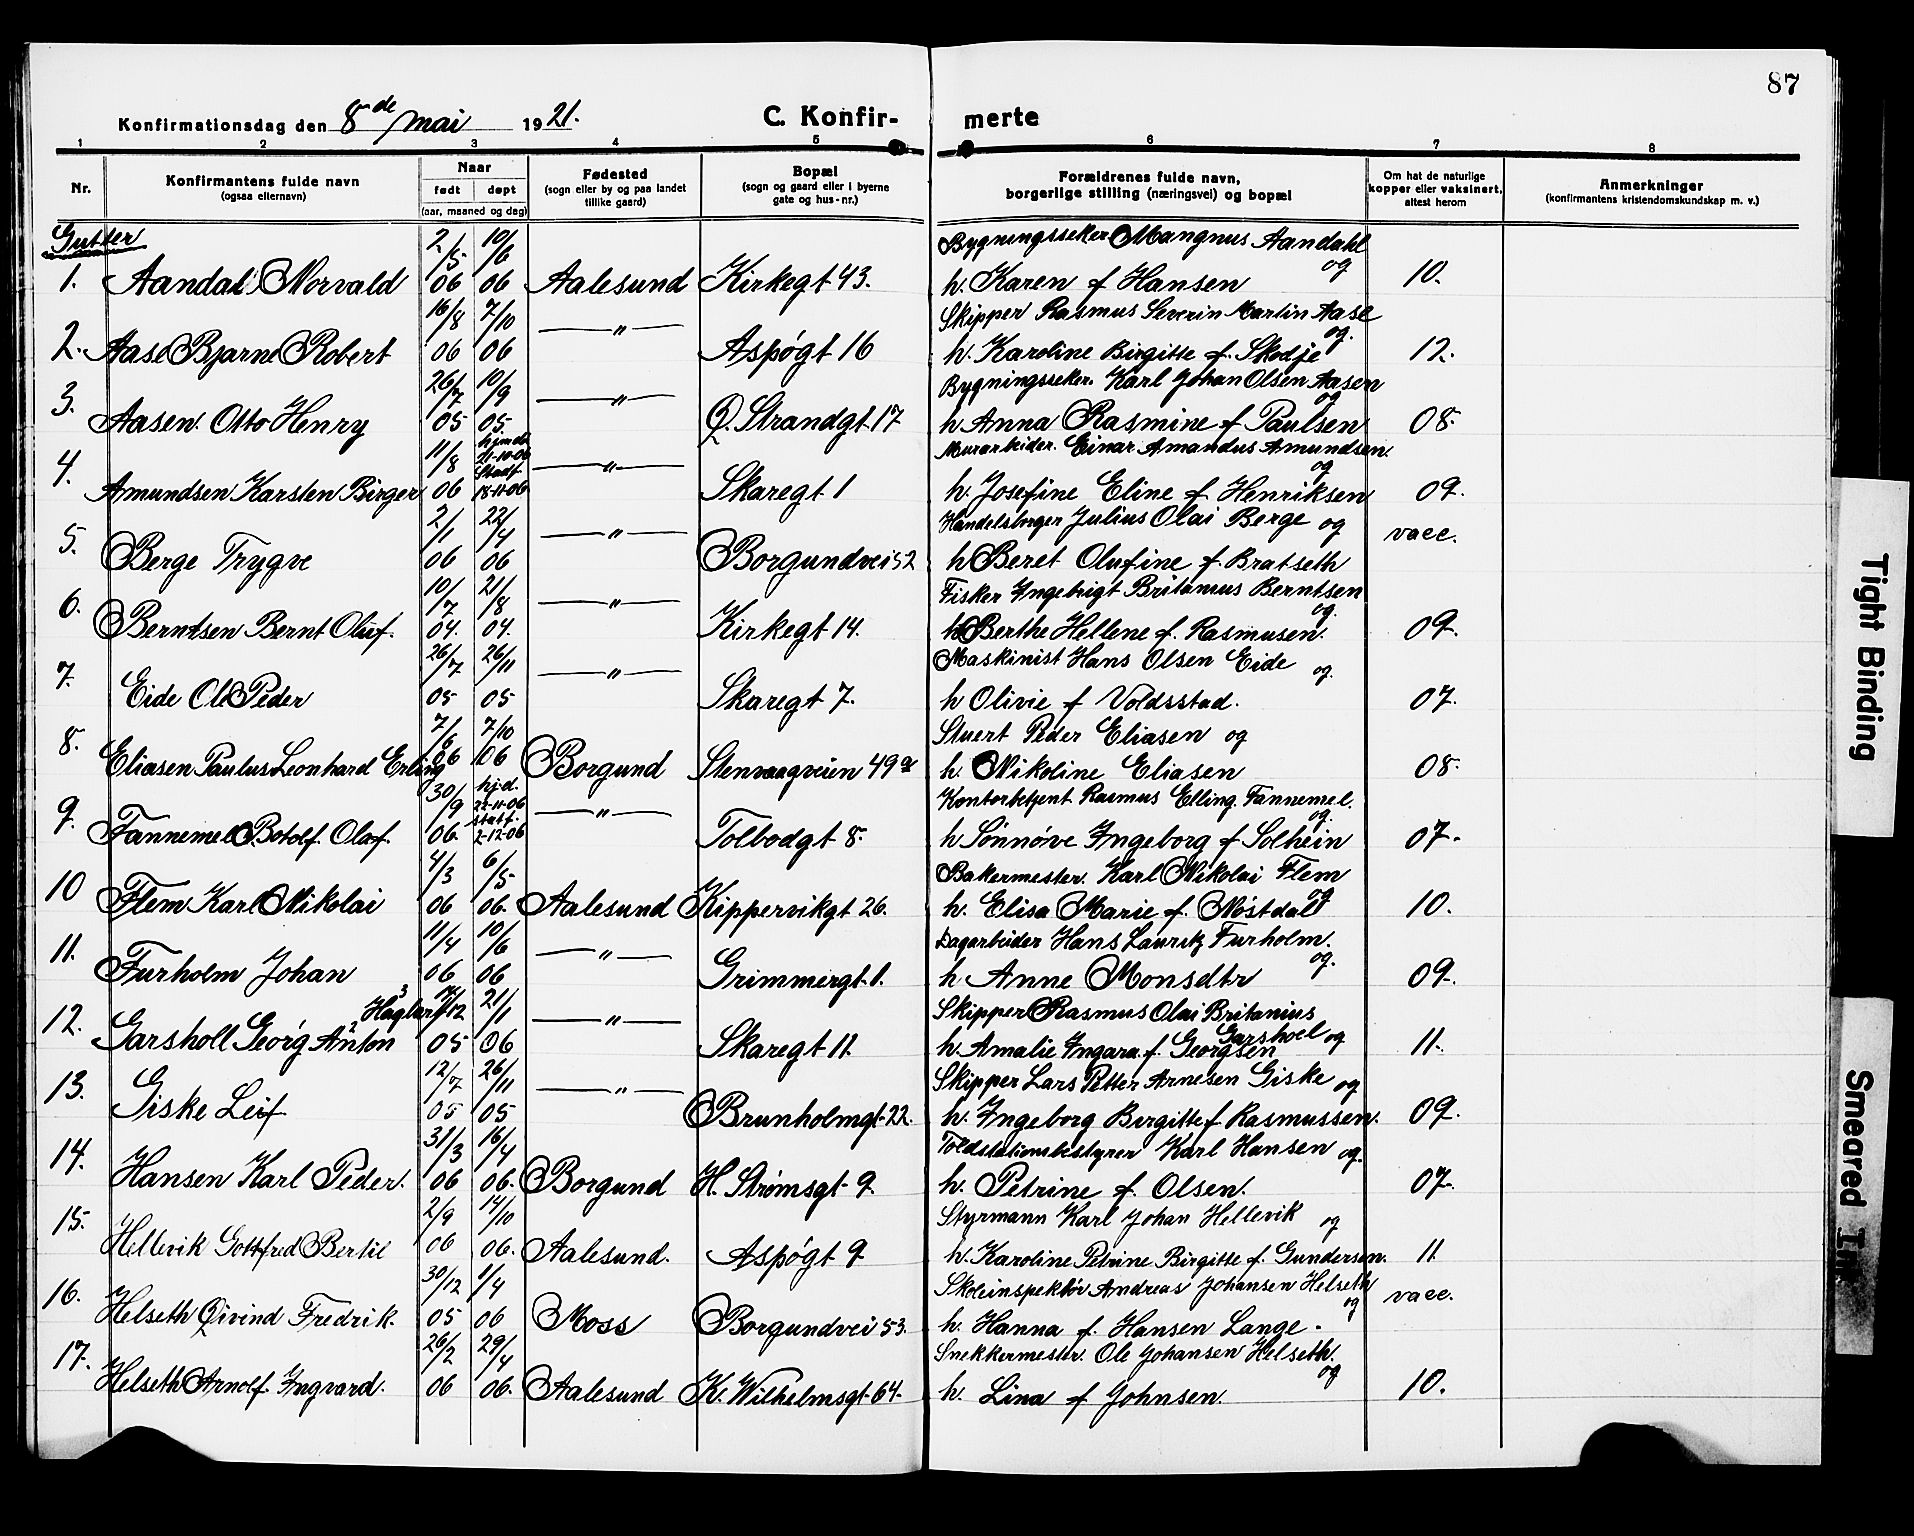 87
Konfirmationsdag den 8de mai 1921. C. Konfir- merte
1 2 3 4 5 6 7 8
Nr. Konfirmantens fulde navn (ogsaa eller­navn) Naar født døpt (aar, maaned og dag) Fødested (sogn eller by og paa landet tillike gaard) Bopæl (sogn og gaard eller i byerne gate og hus-nr.) Forældrenes fulde navn, borgerlige stilling (næringsvei) og bopæl Om hat de naturlige kopper eller vaksinert, attest herom Anmerkninger (konfirmantens kristendomskundskap m. v.)
Gutter
2/5 10/6 Bygningssøker Mangnus Aandahl og
1. Aandal Norvald 06 06 Aalesund Kirkegt 43. h. Karen f Hansen 10.
16/8 7/10 Skipper Rasmus Severin Martin Aase og.
2. Aase Bjarne Robert 06 06 —"— Aspøgt 16 h. Karoline Birgitte f. Skodje 12.
26/7 10/9 Bygningssøker. Karl Johan Olsen Aasen og
3. Aasen. Otto Henry 05 05. —"— Ø. Strandgt. 17 h Anna Rasmine f Paulsen 08.
11/8 hjmdt. 21-10-06 Stadf. Murarbeider. Einar Amandus Amundsen. og
4. Amundsen Karsten Birger 06 18-11-06 —"— Skaregt 1 h. Josefine Eline f Henriksen 09.
2/1 22/4 Handelsborger Julius Olai Berge og
5. Berge Trygve 06 06 —"— Borgundvei 52 h Beret Olufine f Bratseth vacc.
10/7 21/8 Fisker Ingebrigt Britanus Berntsen og.
6. Berntsen Bernt Oluf. 04. 04. —"— Kirkegt 14. h Berthe Hellene f. Rasmusen. 09.
26/7 26/11 Maskinist Hans Olsen Eide og.
7. Eide Ole Peder 05 05 —"— Skaregt 7. h Olivie f Voldsstad. 07.
7/6 7/10 Stuert Peder Eliasen og
8. Eliasen Paulus Leonhard Erling 06 06 Borgund Stenvaagveien 49a h. Nikoline Eliasen 08.
30/9 hj.d. 22-11-06 statf. Kontorbetjent Rasmus Elling Fannemel. og.
9. Fannemel Botolf. Olaf. 06. 2-12-06 —"— Tolbodgt 8. h Sønnøve Ingeborg f Solheim 07.
4/3 6/5 Bakermester. Karl Nikolai Flem og
10 Flem Karl Nikolai 06 06. Aalesund Kippervikgt 26. h. Elisa Marie f. Nøstdal 10.
11/4 10/6 Dagarbeider Hans Lauritz Furholm. og.
11. Furholm Johan 06 06 —"— Grimmergt. 1. h Anne Monsdtr 09.
3 Hagbart 14/12 21/1 Skipper Rasmus Olai Britanius Garshoel og
12. Garsholl Georg 2 Anton 05 06 —"— Skaregt 11. h Amalie Ingara f. Georgsen 11.
12/7 26/11 Skipper Lars Petter Arnesen Giske og
13. Giske Leif 05 05 —"— Brunholmgt. 22. h. Ingeborg Birgitte f Rasmussen. 09.
31/3 16/4 Toldstationsbestyrer Karl Hansen og.
14. Hansen Karl Peder. 06 06. Borgund H. Strømsgt 9 h. Petrine f. Olsen. 07.
2/9 14/10 Styrmann Karl Johan Hellevik og
15. Hellevik Gottfred Bertil 06 06. Aalesund. Aspøgt 9 h. Karoline Petrine Birgitte f. Gundersen. 11
30/12 1/4 Skoleinspektør Andreas Johansen Helseth og
16. Helseth Øivind Fredrik. 05 06 Moss Borgundvei 53. h. Hanna f. Hansen Lange. vacc.
26/2 29/4 Snekkermestr. Ole Johansen Helseth. og
17. Helseth Arnolf. Ingvard. 06 06. Aalesund K. Wilhelmsgt. 64. h. Lina f Johnsen. 10.
Tight Binding
Smeared Ink